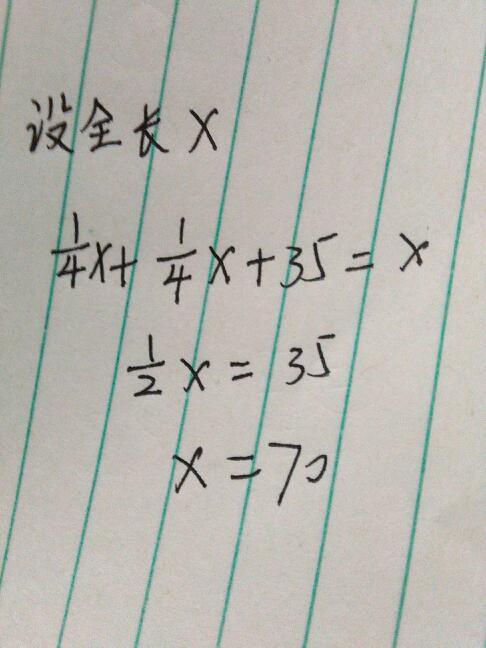 设全长 x
1/4 x + 1/4 x + 35 = x
1/2 x = 35
x = 70